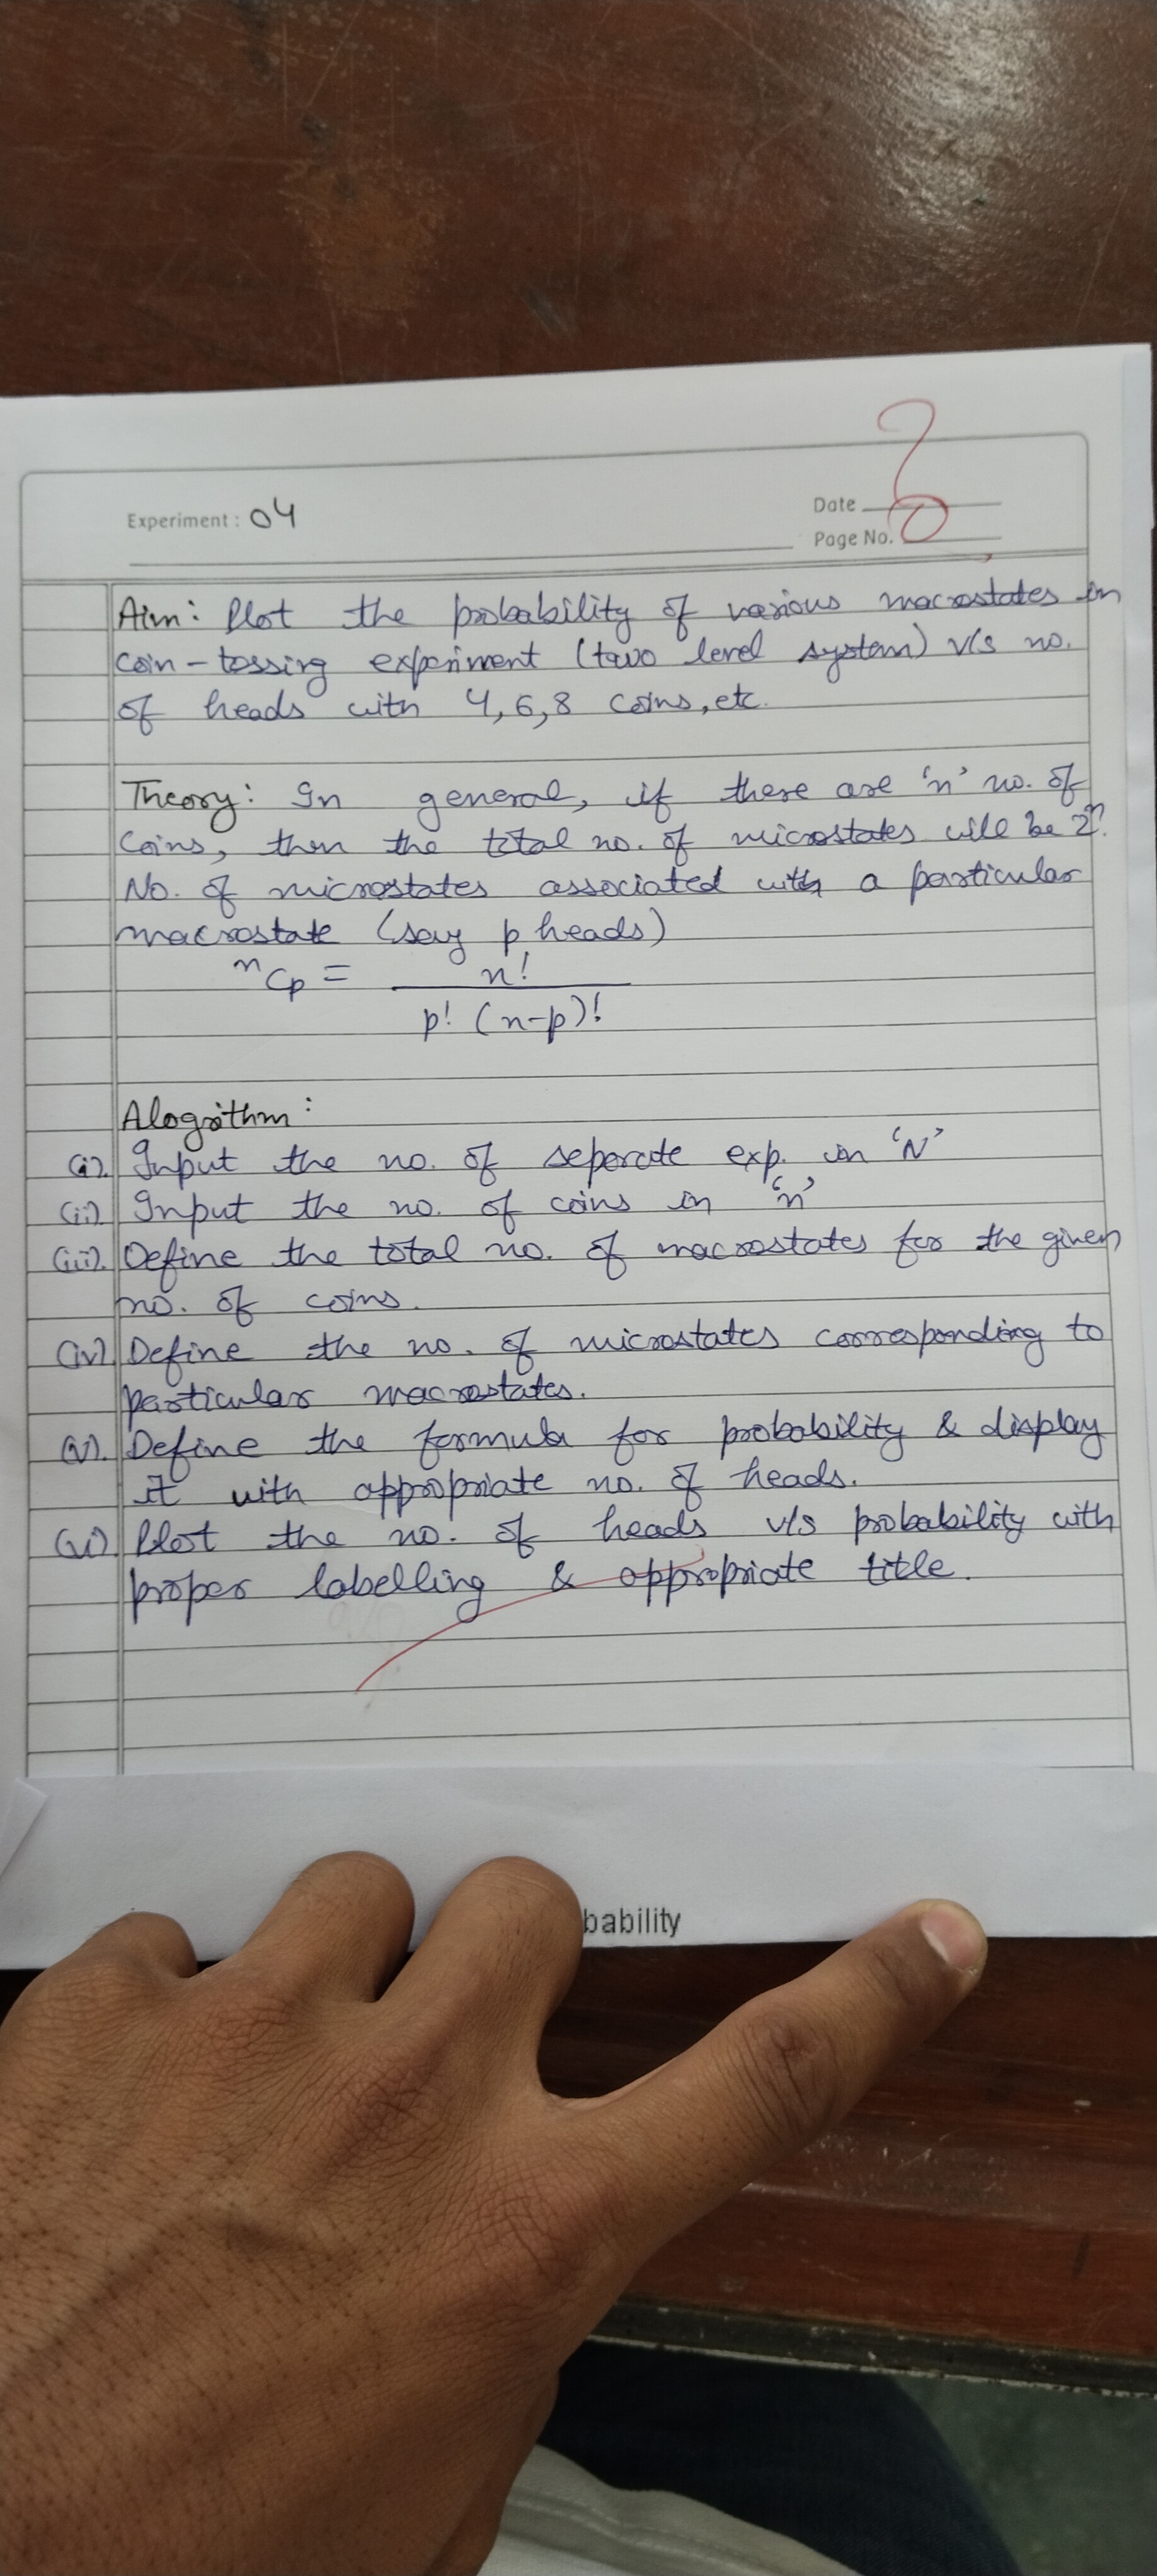 Experiment : 04
Date
Page No.
Aim: Plot the probability of various macrostates in
coin-tossing experiment (two level system) v/s no.
of heads with 4,6,8 coins, etc.
Theory: In general, if there are 'n' no. of
coins, then the total no. of microstates will be 2ⁿ.
No. of microstates associated with a particular
macrostate (say p heads)
ⁿCp = n!
p! (n-p)!
Alogrithm:
(i). Input the no. of seperate exp. in 'N'
(ii) Input the no. of coins in 'n'
(iii). Define the total no. of macrostates for the given
no. of coins.
(iv) Define the no. of microstates corresponding to
particular macrostates.
(v). Define the formula for probability & display
it with appropriate no. of heads.
(vi) Plot the no. of heads v/s probability with
proper labelling & appropriate title.
bability